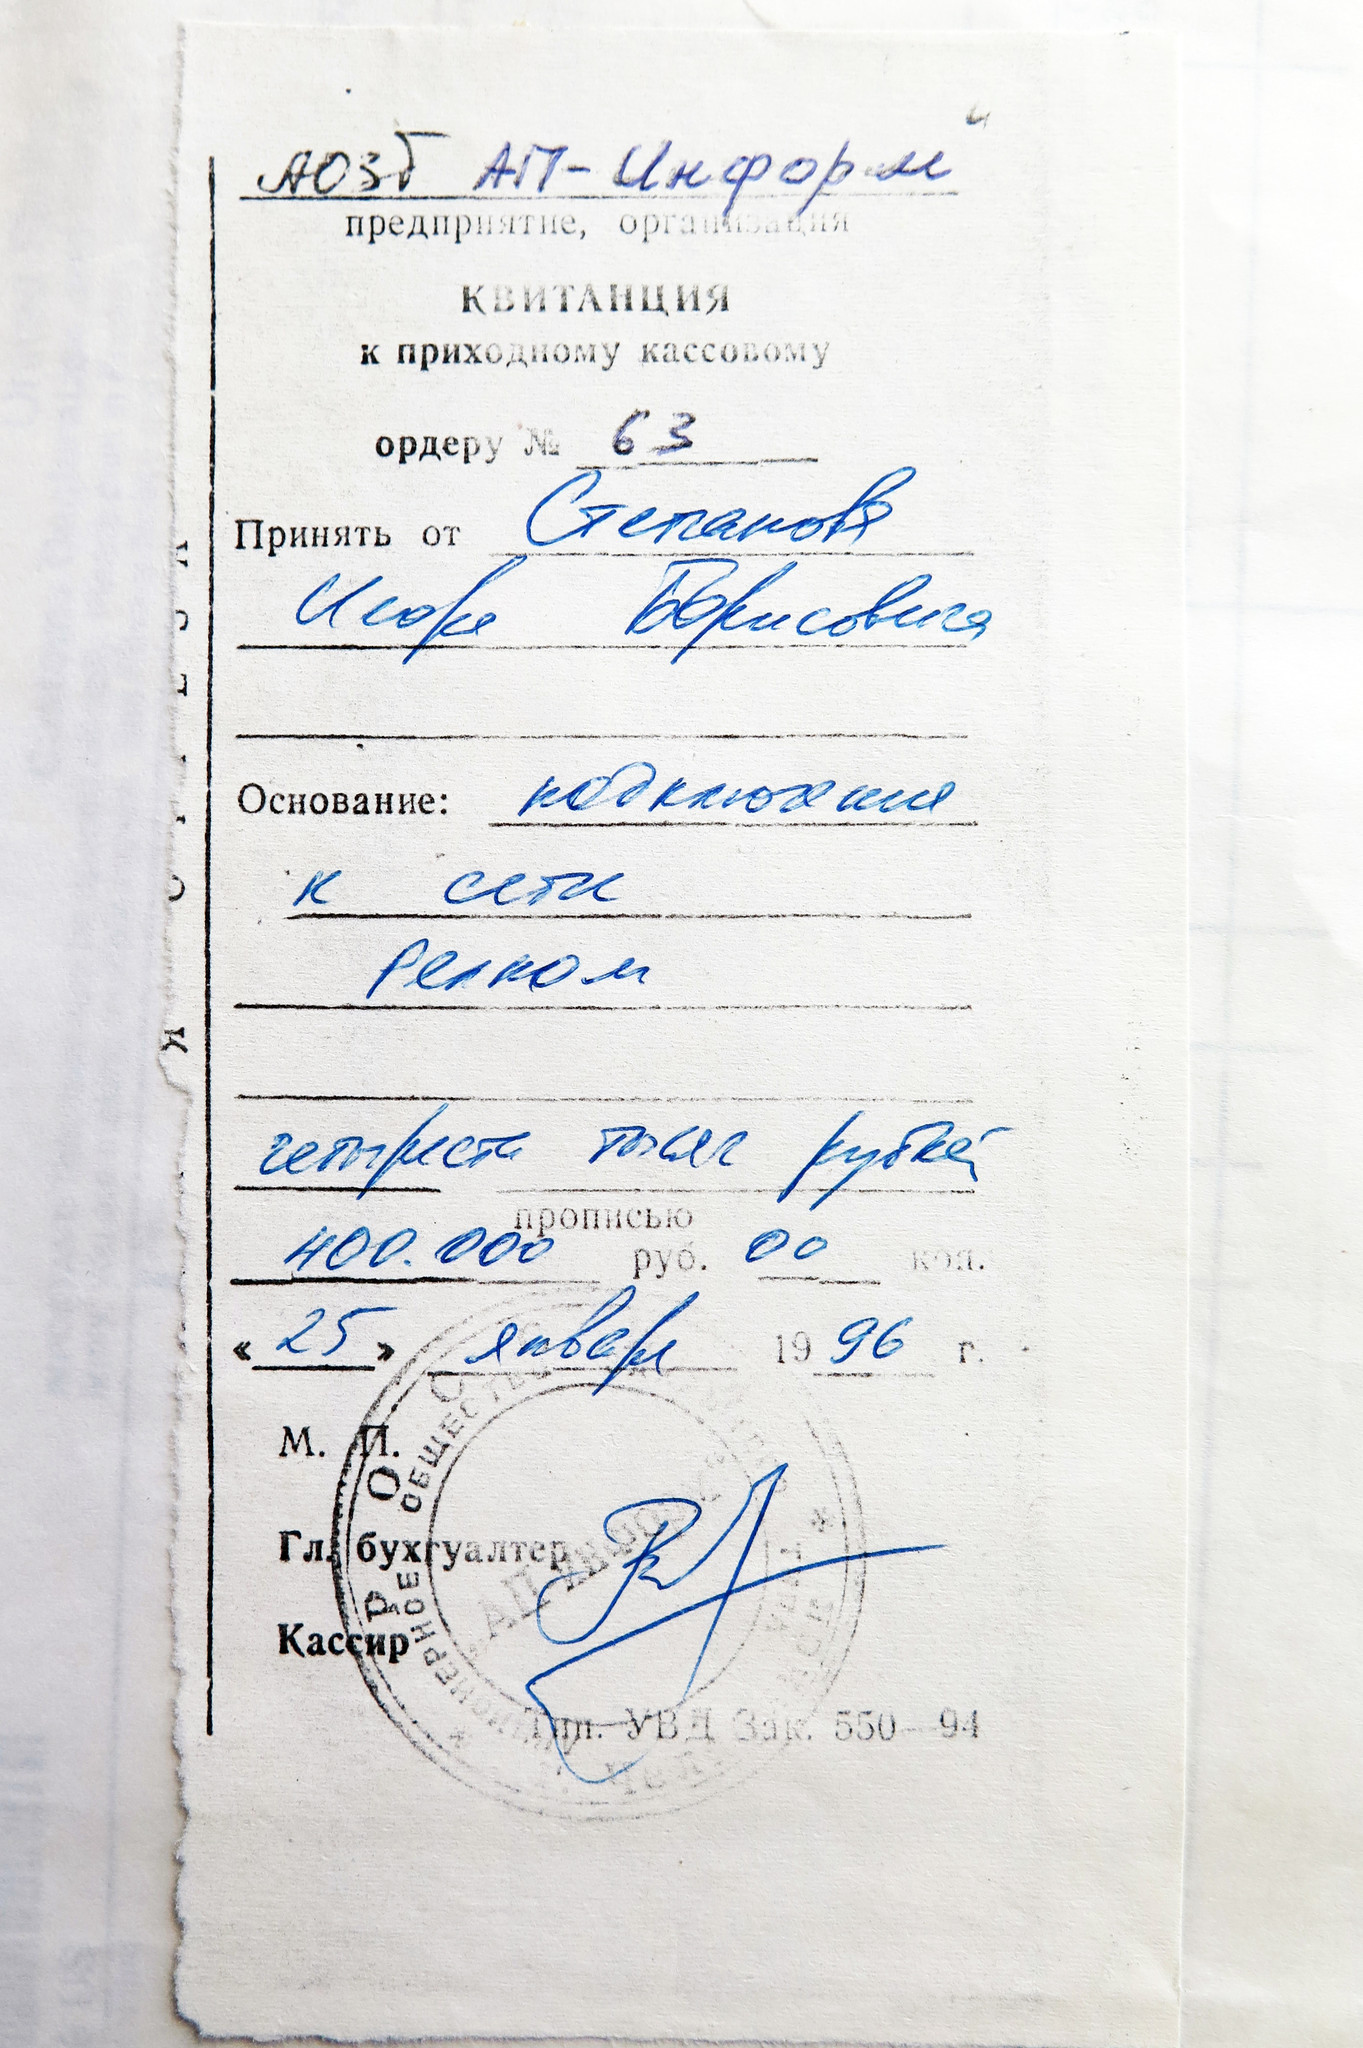 АОЗТ АП-Информ"
предприятие, организация
КВИТАНЦИЯ
к приходному кассовому
ордеру № 63
Принять от Степанова
Игоря Борисовича
Основание: подключение
к сети
Релком
четыреста тысяч рублей
прописью
400.000 руб. 00 коп.
«25» января 1996 г.
М. П.
Гл. бухгалтер
Кассир
Тип. УВД Зак. 550—94
ОБЩЕСТВО
АКЦИОНЕРНОЕ
"АП Информ"